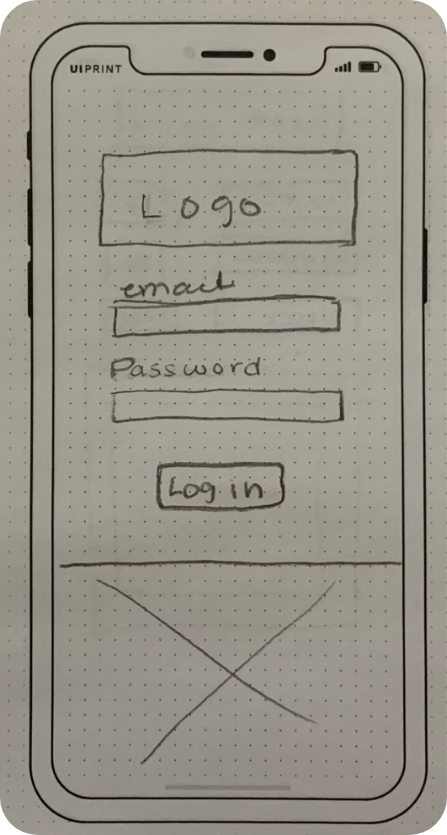 UIPRINT
Logo
email
Password
Log in